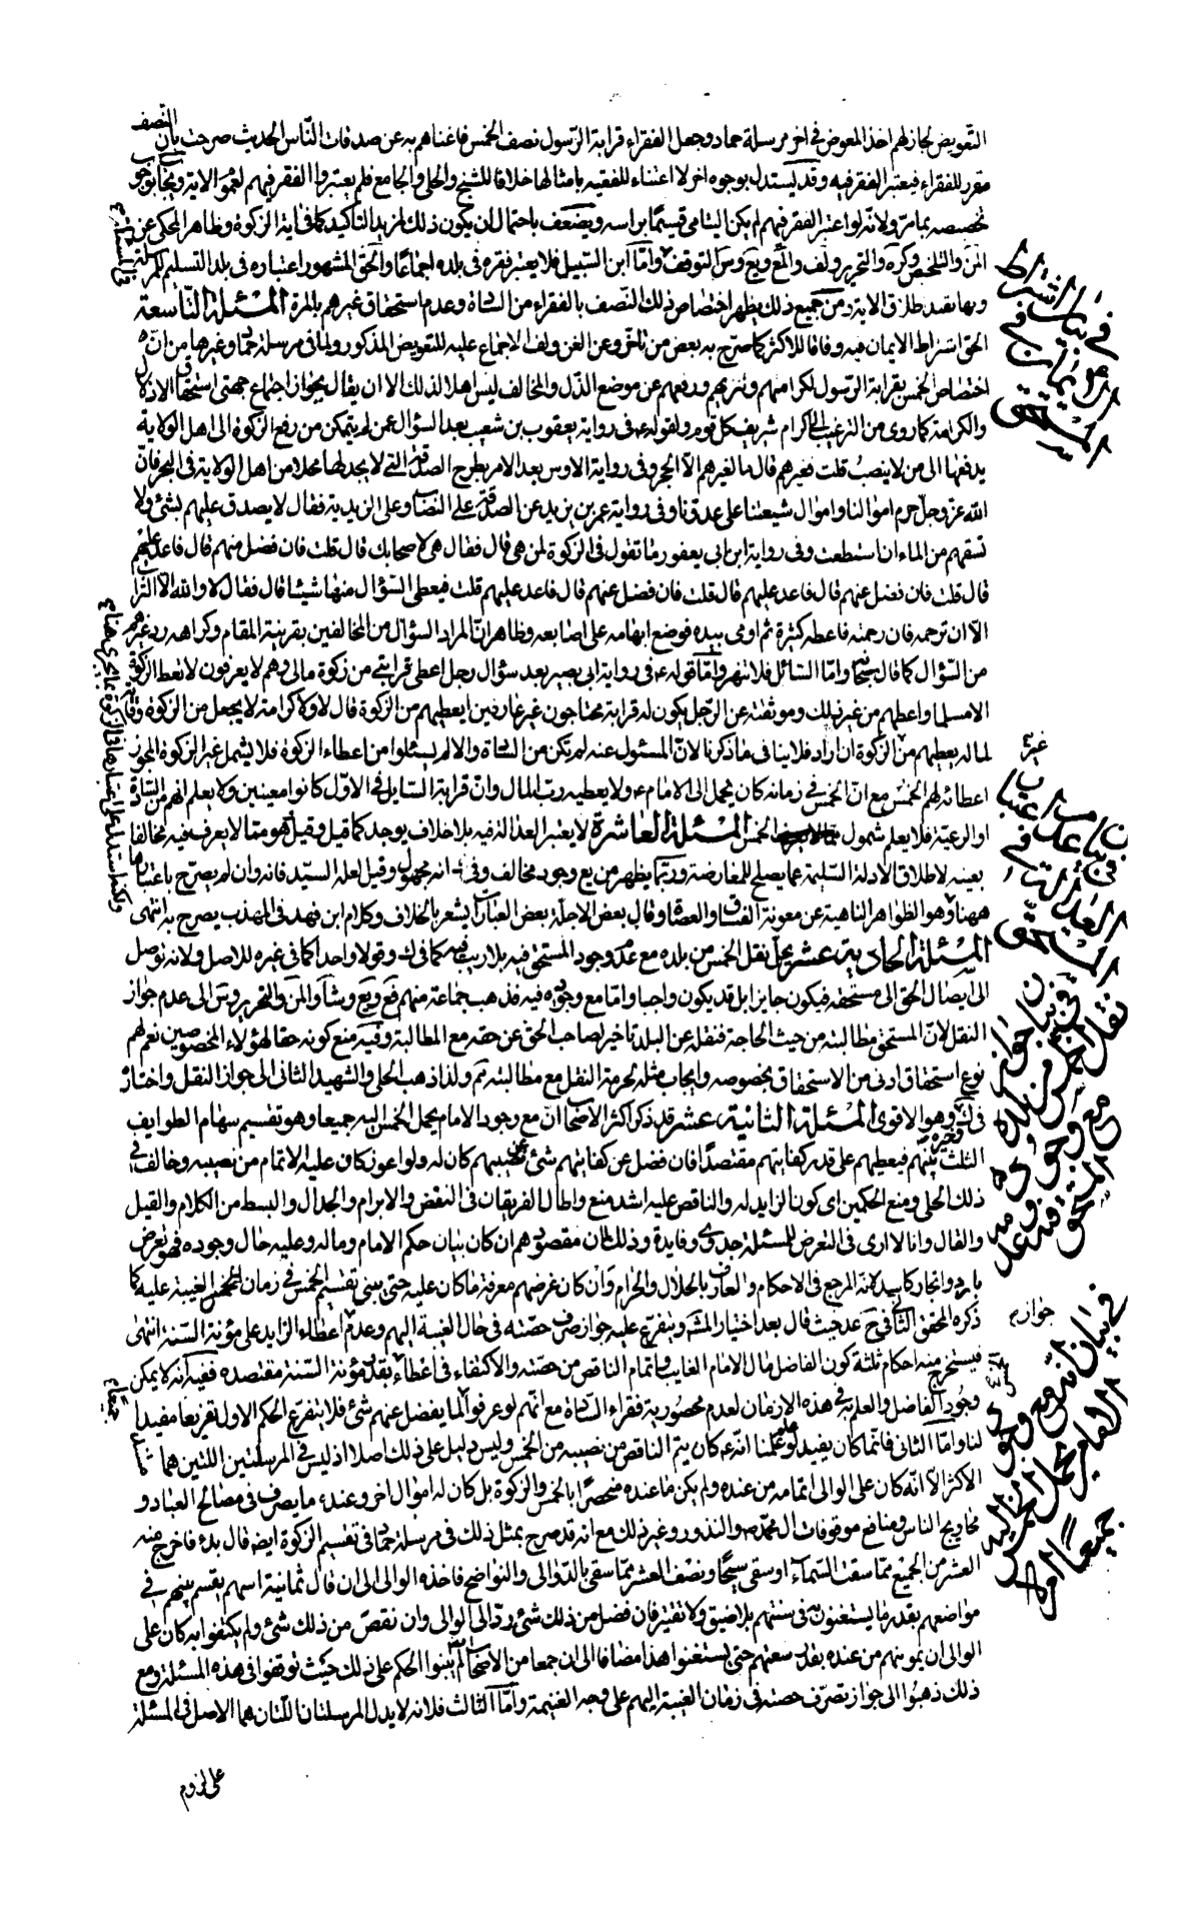 التعويض لجاز لهم اخذ المعوض في اخر مرسلة حماد وجعل الفقراء قرابة الرسول نصف الخمس فاغناهم به عن صدقات الناس الحديث صرحت بان النصف
مقرر للفقراء فيعتبر الفقر فيه وقد يستدل بوجوه اخر لا اعتناء للفقيه بامثالها خلافا للشيخ والحلي والجامع فلم يعتبروا الفقر فيهم لعموم الاية ويجاب بوجوب
تخصيصه بما مر ولانه لو اعتبر الفقر فيهم لم يكن اليتامى قسيما براسه ويضعف باحتمال ان يكون ذلك لمزيد التاكيد كما في اية الزكوة وظاهر المحكي عن
والتلخيص وكره والتحرير ولف والتوقف واما ابن السبيل فلا يعتبر فقره في بلده اجماعا والحق المشهور اعتباره في بلد التسليم للمرسلة
وبها يقيد طلاق الاية ومن جميع ذلك يظهر اختصاص ذلك النصف بالفقراء من السادة وعدم استحقاق غيرهم بالمرة المسئلة التاسعة
الحق اشتراط الايمان فيه وفاقا للاكثر كما صرح به بعض من تاخر وعن الغنية ولف الاجماع عليه للتعويض المذكور ولما في مرسلة حماد وغيرها من ان
اختصاص الخمس بقرابة الرسول لكرامتهم وتنزيههم ورفعهم عن موضع الذل والمخالف ليس اهلا لذلك الا ان يقال بجواز اجتماع جهتي استحقاق الاذلال
والكرامة كما روي من الترغيب الى اكرام شريف كل قوم ولقوله ع في رواية يعقوب بن شعيب بعد السؤال عمن لم يتمكن من رفع الزكوة الى اهل الولاية
يدفعها الى من لا ينصب قلت فغيرهم قال ما لغيرهم الا الحجر وفي رواية الاوسي بعد الامر بطرح الصدقة التي لا يجد لها محلا من اهل الولاية في البحر فان
الله عز وجل حرم اموالنا واموال شيعتنا على عدونا وفي رواية عمر بن يزيد عن الصدقة على النصاب وعلى الزيدية فقال لا تصدق عليهم بشئ ولا
تسقهم من الماء ان استطعت وفي رواية ابن ابي يعفور ما تقول في الزكوة لمن هي قال فقال هي لاصحابك قال قلت فان فضل منهم قال فاعد عليهم
قال قلت فان فضل عنهم قال فاعد عليهم قال قلت فان فضل عنهم قال فاعد عليهم قلت فيعطى السؤال منها شيئا قال فقال لا والله الا التراب
الا ان ترحمه فان رحمته فاعطه كسرة ثم اومى بيده فوضع ابهامه على اصابعه وظاهر ان المراد السؤال من المخالفين بقرينة المقام وكراهه رد غيرهم
من السؤال كما قال سبحانه واما السائل فلا تنهر واما قوله ع في رواية ابي بصير بعد سؤال رجل اعطي قرابتي من زكوة مالي وهم لا يعرفون لا تعط الزكوة
الا مسلما واعطهم من غير ذلك وموثقته عن الرجل يكون له قرابة محتاجون غير عارفين ايعطيهم من الزكوة قال لا ولا كرامة لا يجعل من الزكوة وقاية
لماله يعطيهم من الزكوة ان اراد فلا ينافي ما ذكرنا لان المسئول عنه لم يكن من السادة والا لم يسئلوا من اعطاء الزكوة فلا يشمل غير الزكوة المجوز
اعطائه لهم الخمس مع ان الخمس في زمانه كان يحمل الى الامام ع ولا يعطيه رب المال وان قرابة السايل في الاول كانوا معينين ولا يعلم انهم من السادة
او الرعية فلا يعلم شمول الخمس المسئلة العاشرة لا يعتبر العدالة فيه بلا خلاف يوجد كما قيل وقيل هو مما لا يعرف فيه مخالفا
بعينه لاطلاق الادلة السليمة عما يصلح للمعارضة وربما يظهر من يع وجود مخالف وفي انه مجهول وقيل لعله السيد فانه وان لم يصرح باعتبارها
ههنا وهو الظواهر الناهية عن معونة الفساق والعصاة وقال بعض الاجلة بعض العبارات يشعر بالخلاف وكلام ابن فهد في المهذب يصرح به انتهى
المسئلة الحادية عشر يحل نقل الخمس من بلده مع عدم وجود المستحق فيه بلا ريب فيه كما في ك وقولا واحدا كما في غيره للاصل ولانه توصل
الى ايصال الحق الى مستحقه فيكون جايزا بل قد يكون واجبا واما مع وجوده فيه فذهب جماعة منهم والتحرير الى عدم جواز
النقل لان المستحق مطالبته من حيث الحاجة فنقله عن البلد تاخير لصاحب الحق عن حقه مع المطالبة وفيه منع كونه حقا لهؤلاء المخصوصين نعم لهم
نوع استحقاق ادنى من الاستحقاق بخصوصه وايجاب مثله لحرمة النقل مع مطالبته ثم ولذا ذهب الحلي والشهيد الثاني الى جواز النقل واختاره
في وهو الاقوى المسئلة الثانية عشر قد ذكر اكثر الاصحاب ان مع وجود الامام يحمل الخمس اليه جميعا وهو تقسيم سهام الطوايف
الثلث بينهم فيعطيهم على قدر كفايتهم مقتصدا فان فضل عن كفايتهم شئ عن نصيبهم كان له ولو اعوز كان عليه الاتمام من نصيبه وخالف في
ذلك الحلي ومنع الحكمين اي كون الزايد له والناقص عليه اشد منع واطال الفريقان في النقض والابرام والجدال والبسط من الكلام والقيل
والقال وانا لا ارى في التعرض للمسئلة جدوى وفايدة وذلك لان مقصودهم ان كان بيان حكم الامام وماله وعليه حال وجوده فهو تعرض
بارد واتجار كاسد لانه المرجع في الاحكام والعارف بالحلال والحرام وان كان غرضهم معرفة ما كان عليه حتى يبنى تقسيم الخمس في زمان الغيبة عليه كما
ذكره المحقق الثاني في حيث قال بعد اختيار المشهور ويتفرع عليه جواز صرف حصته في حال الغيبة اليهم وعدم اعطاء الزايد على مؤنة السنة انتهى
فيستخرج منه احكام ثلثة كون الفاضل مال الامام الغايب واتمام الناقص من حصته والاكتفاء في اعطاء بقدر مؤنة السنة مقتصده ففيه انه لا يمكن
وجود الفاضل والعلم به في هذه الازمان لعدم محصورية فقراء السادة مع انهم لو عرفوا لما يفضل عنهم شئ فلا يتفرع الحكم الاول تفريعا مفيدا
لنا واما الثاني فانما كان يفيد لو علمنا انه ع كان يتم الناقص من نصيبه من الخمس وليس دليل على ذلك اصلا اذ ليس في المرسلتين اللتين هما
الاكثر الا انه كان على الوالي اتمامه من عنده ولم يكن ما عنده منحصرا بالخمس والزكوة بل كان له اموال اخر وعنده ما يصرف في مصالح العباد و
محاويج الناس ومنافع موقوفات ال محمد ص والنذور وغير ذلك مع انه قد صرح بمثل ذلك في مرسلة حماد في تقسيم الزكوة ايضا قال بدء فاخرج منه
العشر من الجميع مما سقت السماء او سقي سيحا ونصف العشر مما سقى بالدوالي والنواضح فاخذه الوالي الى ان قال ثمانية اسهم يقسم بينهم في
مواضعهم بقدر ما يستغنون به في سنتهم بلا ضيق ولا تقتير فان فضل من ذلك شئ رد الى الوالي وان نقص من ذلك شئ ولم يكتفوا به كان على
الوالي ان يمونهم من عنده بقدر سعتهم حتى يستغنوا هذا مضافا الى ان جمعا من الاصحاب لم يبنوا الحكم على ذلك حيث توقفوا في هذه المسئلة ومع
ذلك ذهبوا الى جواز تصرف حصته في زمان الغيبة اليهم على وجه الغنيمة واما الثالث فلانه لا يدل المرسلتان اللتان هما الاصل في المسئلة
على لزوم
في بيان اشتراط
الايمان في
المستحق
غيره
في بيان عدم اعتبار
العدالة في
المستحق
في بيان جواز
نقل الخمس من بلده
مع وجود
المستحق فيه وعدم
جوازه
في بيان انه مع وجود
الامام يحمل الخمس اليه
جميعا ام لا